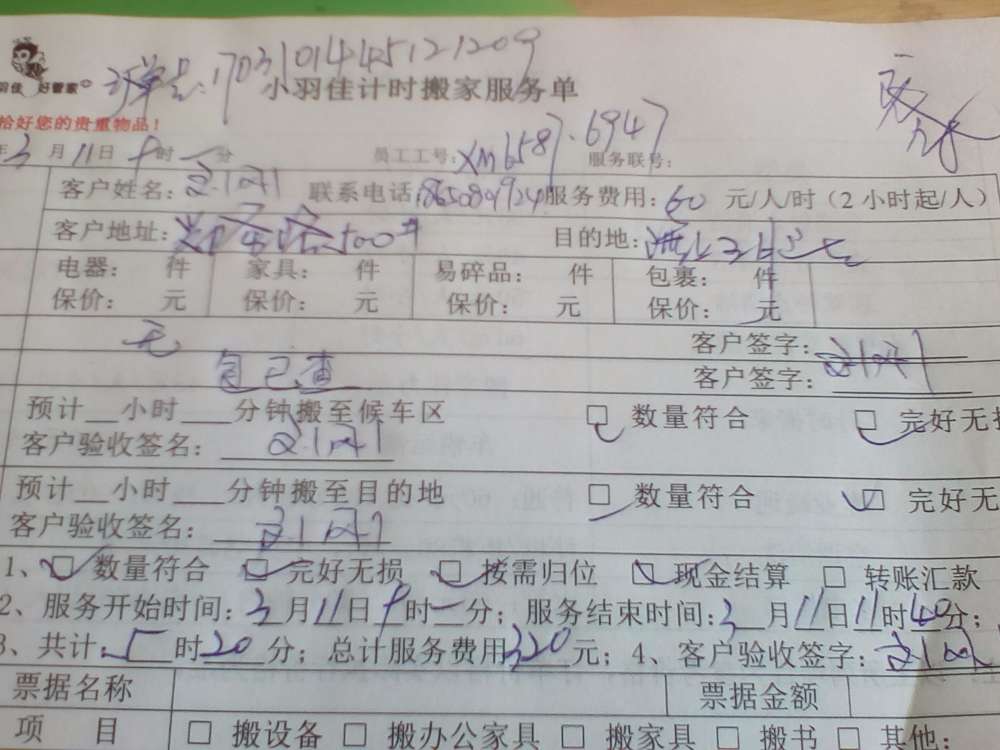 羽佳 好管家
订单号:17031014445121209
小羽佳计时搬家服务单
恰好您的贵重物品!
年3月11日9时一分 员工工号:XM6587.6947 服务联号:
客户姓名: 联系电话: 服务费用:60元/人/时(2小时起/人)
客户地址: 500# 目的地:
电器: 件 家具: 件 易碎品: 件 包裹: 件
保价: 元 保价: 元 保价: 元 保价: 元
无 客户签字:
包已查 客户签字:
预计__小时___分钟搬至候车区 □ 数量符合 □ 完好无损
客户验收签名:
预计__小时___分钟搬至目的地 □ 数量符合 □ 完好无
客户验收签名:
1、□ 数量符合 □ 完好无损 □ 按需归位 □ 现金结算 □ 转账汇款
2、服务开始时间:3月11日9时一分;服务结束时间:3月11日11时40分;
3、共计:5时20分;总计服务费用320元;4、客户验收签字:
票据名称 票据金额
项 目 □ 搬设备 □ 搬办公家具 □ 搬家具 □ 搬书 □ 其他: